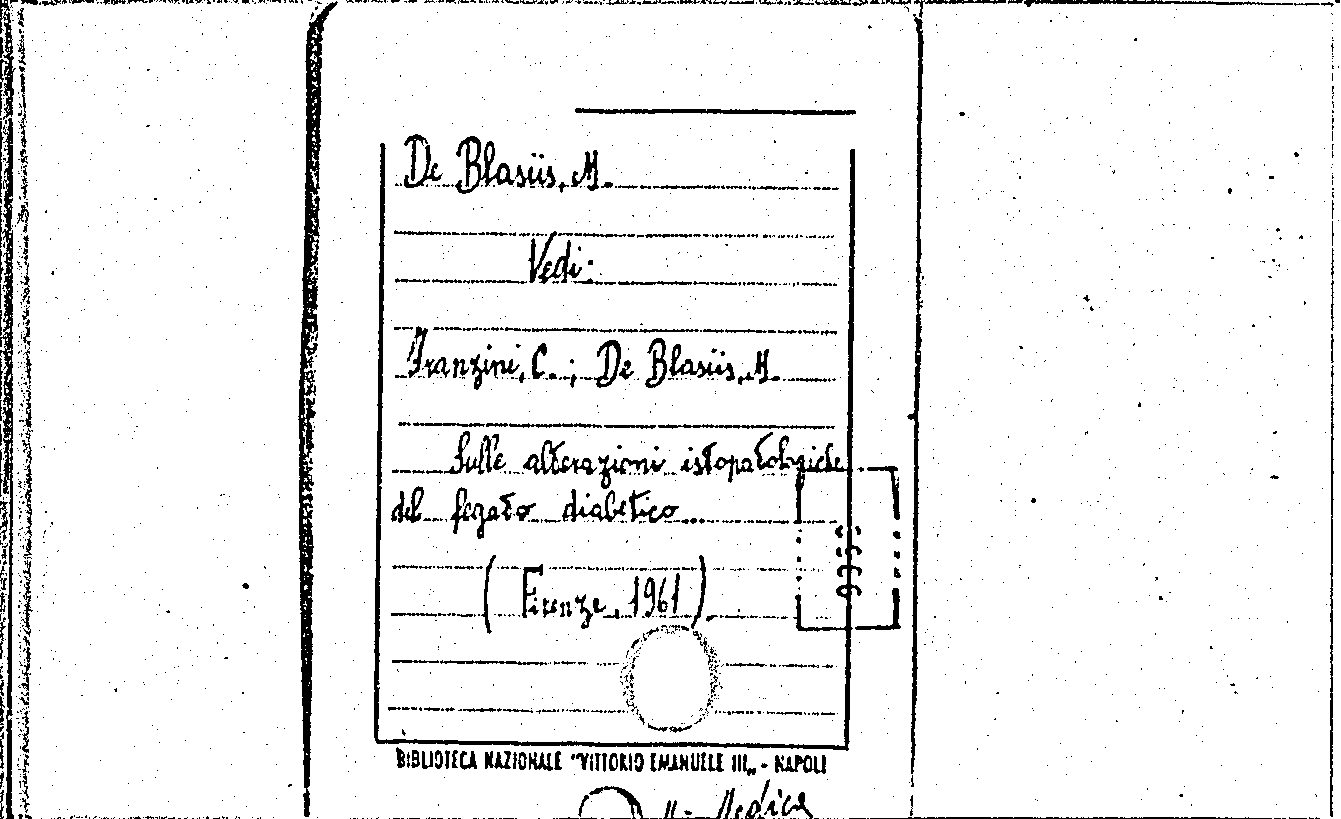 De Blasiis, M.
Vedi:
Franzini, C. ; De Blasiis, M.
Sulle alterazioni istopatologiche
del fegato diabetico...
( Firenze, 1961 ).
BIBLIOTECA NAZIONALE "VITTORIO EMANUELE III„ - NAPOLI
Medica